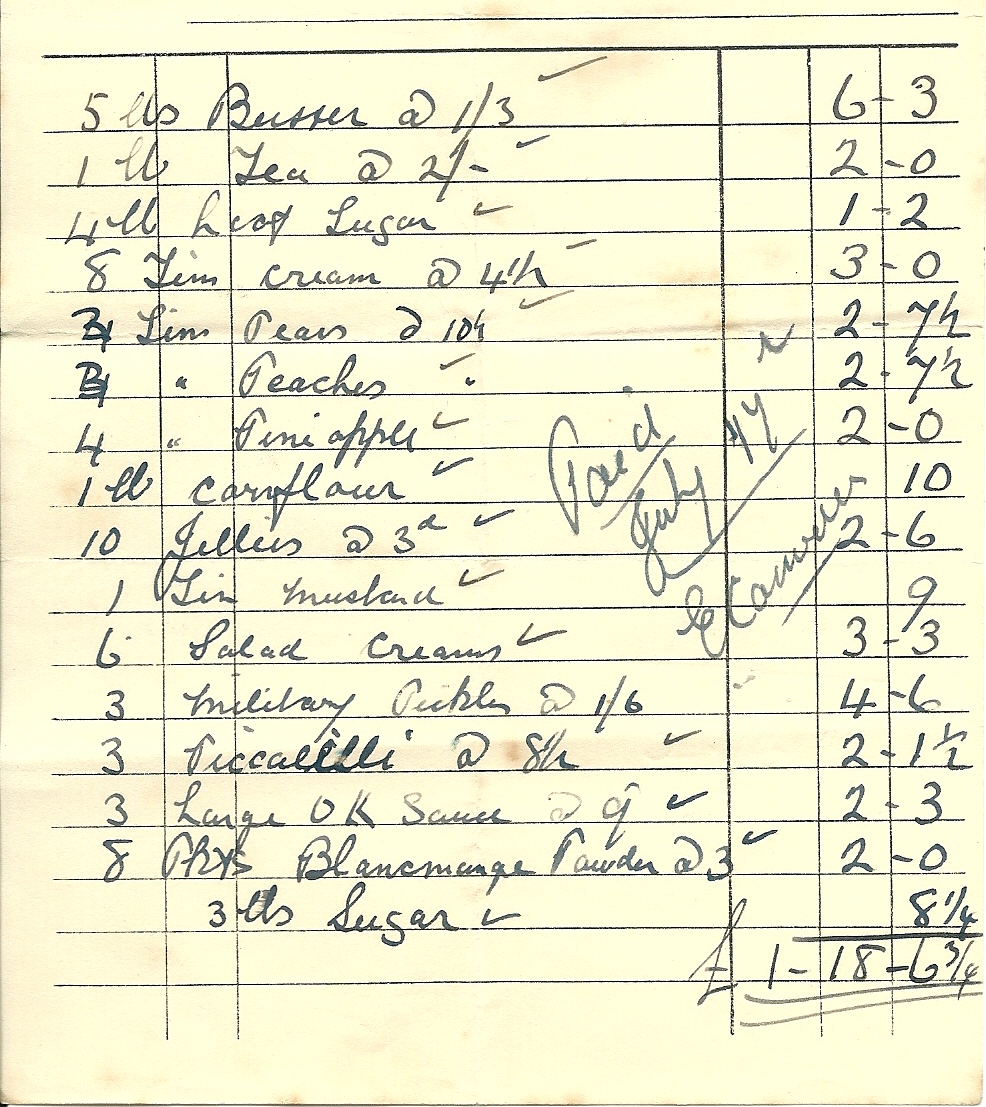 5 lbs Butter @ 1/3 6-3
1 lb Tea @ 2/- 2-0
4 lb Loaf Sugar 1-2
8 Tins cream @ 4½ 3-0
3 Tins Pears @ 10½ 2-7½
3 " Peaches " 2-7½
4 " Pineapple 2-0
1 lb Cornflour 10
10 Jellies @ 3d 2-6
1 Tin Mustard 9
6 Salad Creams 3-3
3 Military Pickles @ 1/6 4-6
3 Piccalilli @ 8½ 2-1½
3 Large OK Sauce @ 9 2-3
8 Pkts Blancmange Powder @ 3 2-0
3 lbs Sugar 8¼
£ 1-18-6¾
Paid
July